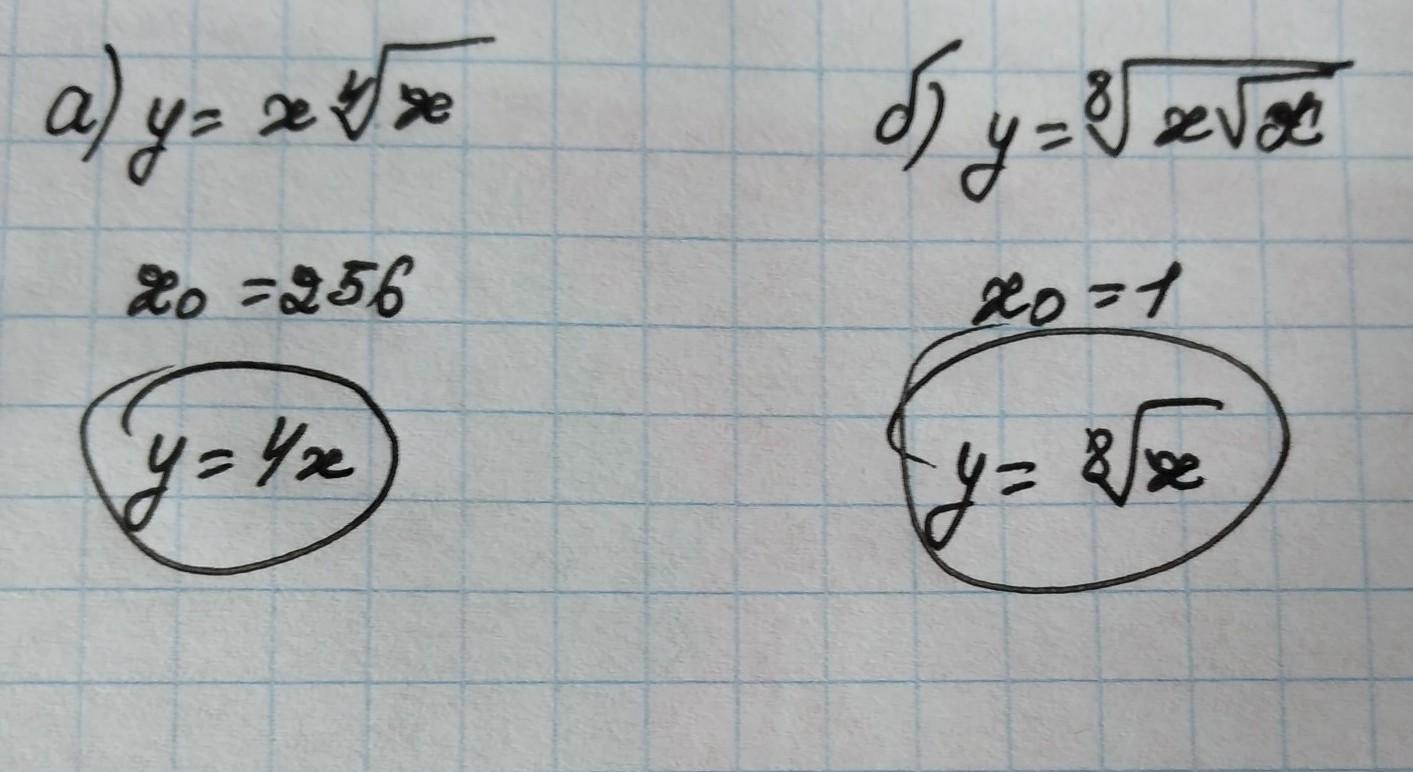 а) y = x ∜x
x₀ = 256
y = 4x
б) y = ⁸√(x√x)
x₀ = 1
y = ⁸√x